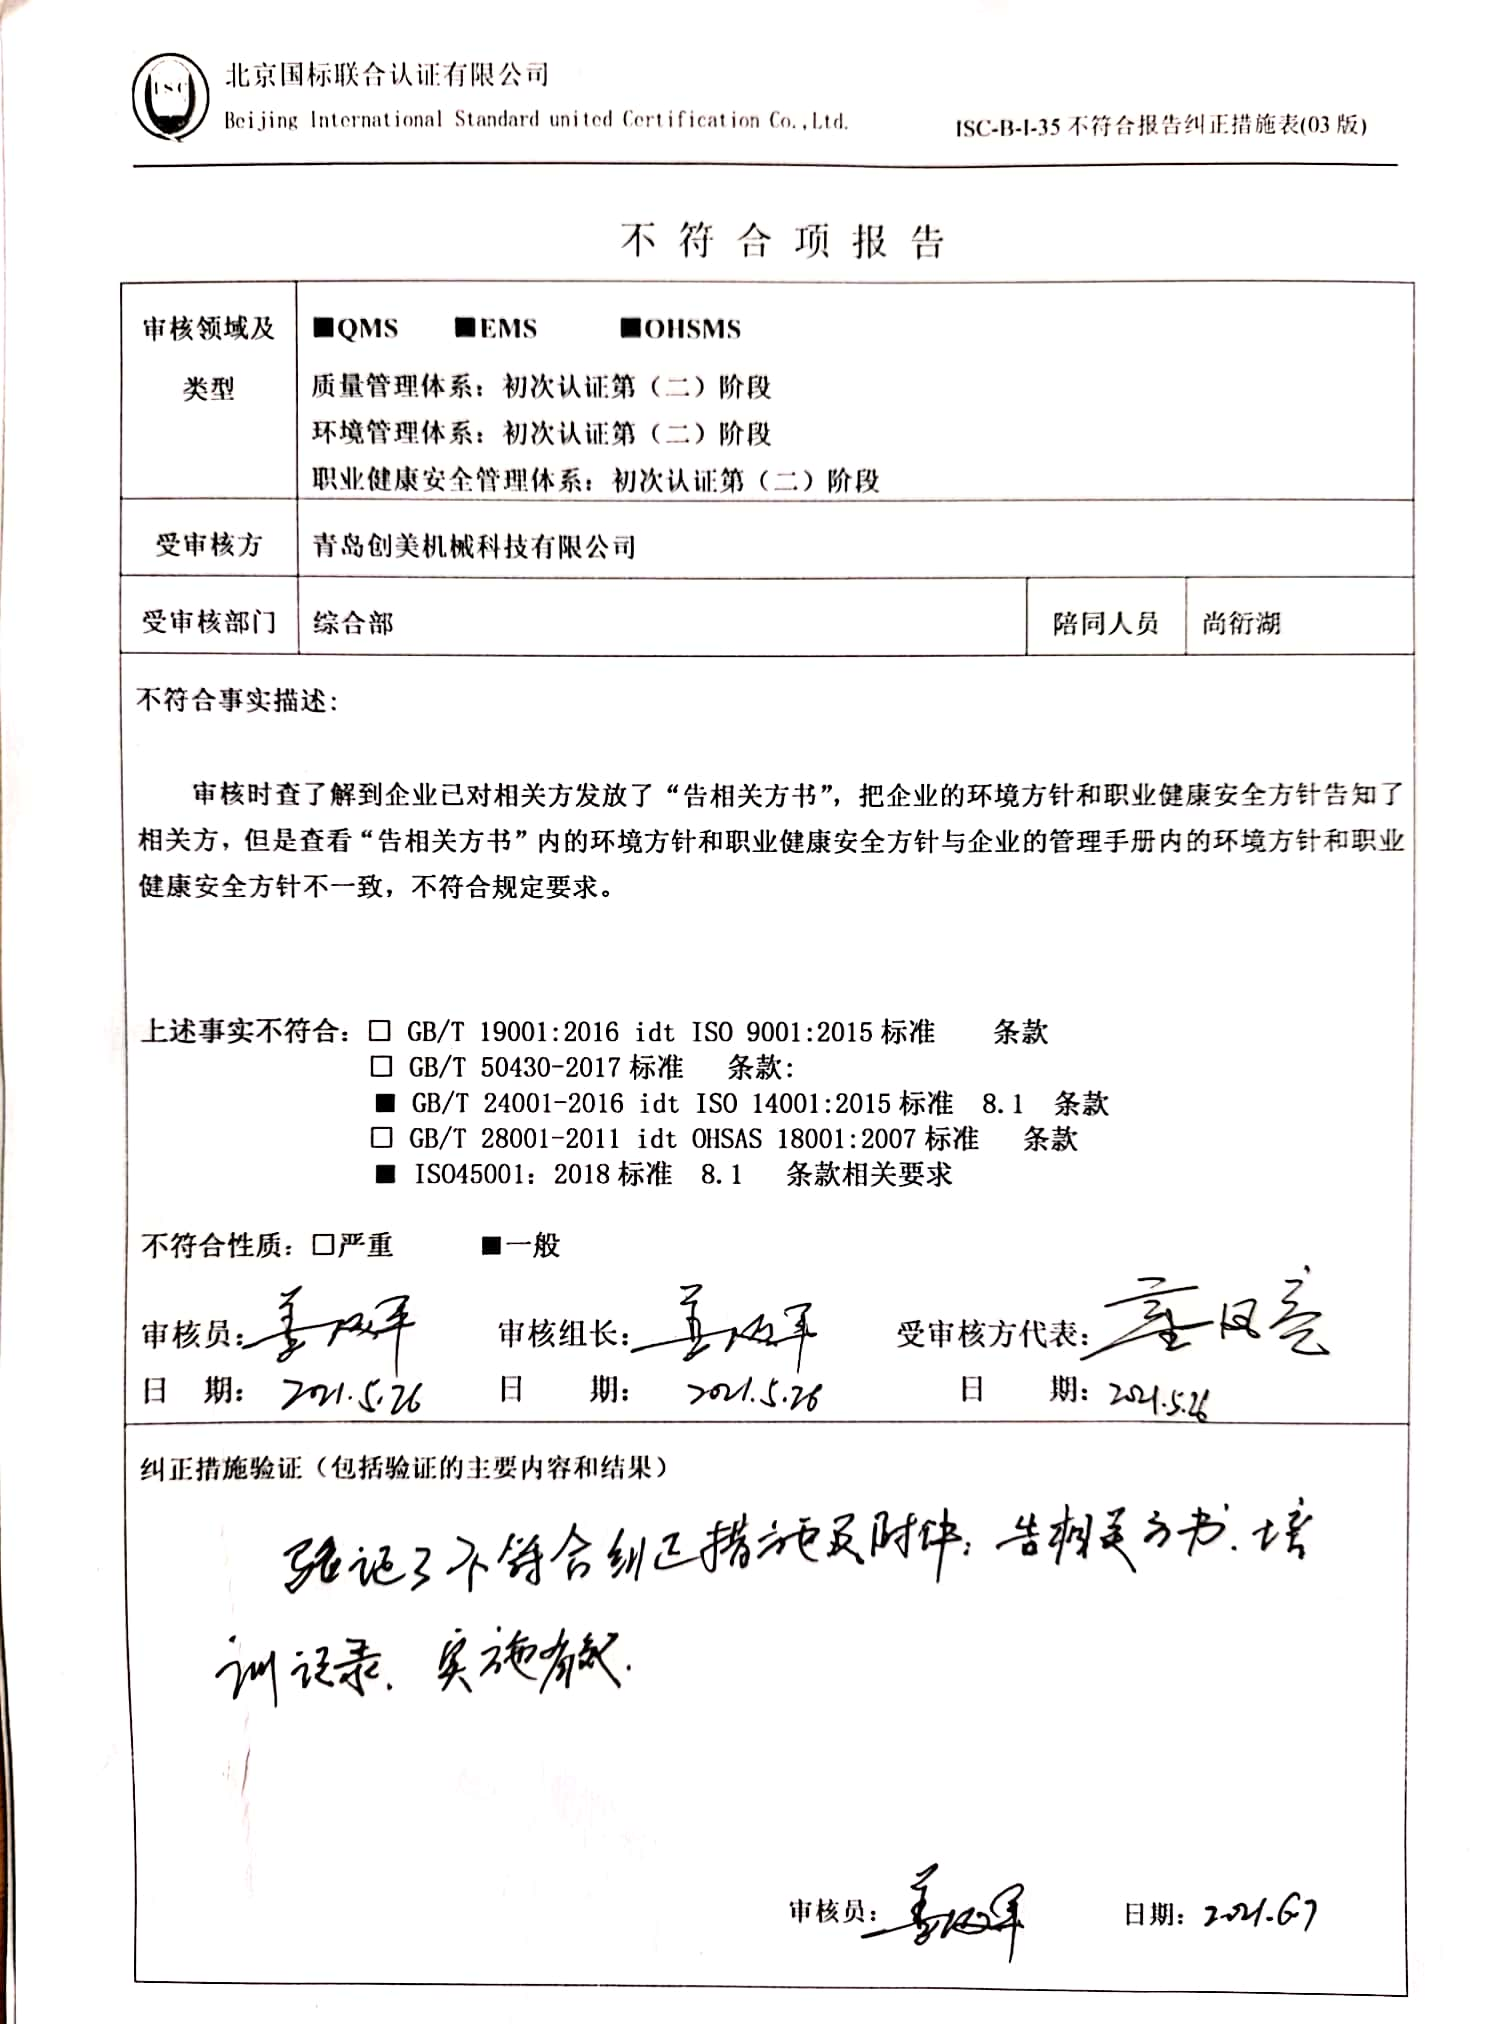 ISC
北京国标联合认证有限公司
Beijing International Standard united Certification Co.,Ltd.
ISC-B-I-35 不符合报告纠正措施表(03 版)
不符合项报告
审核领域及类型
■QMS ■EMS ■OHSMS
质量管理体系：初次认证第（二）阶段
环境管理体系：初次认证第（二）阶段
职业健康安全管理体系：初次认证第（二）阶段
受审核方 青岛创美机械科技有限公司
受审核部门 综合部 陪同人员 尚衍湖
不符合事实描述：
审核时查了解到企业已对相关方发放了“告相关方书”，把企业的环境方针和职业健康安全方针告知了
相关方，但是查看“告相关方书”内的环境方针和职业健康安全方针与企业的管理手册内的环境方针和职业
健康安全方针不一致，不符合规定要求。
上述事实不符合：□ GB/T 19001:2016 idt ISO 9001:2015 标准 条款
□ GB/T 50430-2017 标准 条款：
■ GB/T 24001-2016 idt ISO 14001:2015 标准 8.1 条款
□ GB/T 28001-2011 idt OHSAS 18001:2007 标准 条款
■ ISO45001：2018 标准 8.1 条款相关要求
不符合性质：□严重 ■一般
审核员： 审核组长： 受审核方代表：
日 期：2021.5.26 日 期：2021.5.26 日 期：2021.5.26
纠正措施验证（包括验证的主要内容和结果）
验证了不符合纠正措施及附件：告相关方书、培
训记录、实施有效.
审核员： 日期：2021.6.7